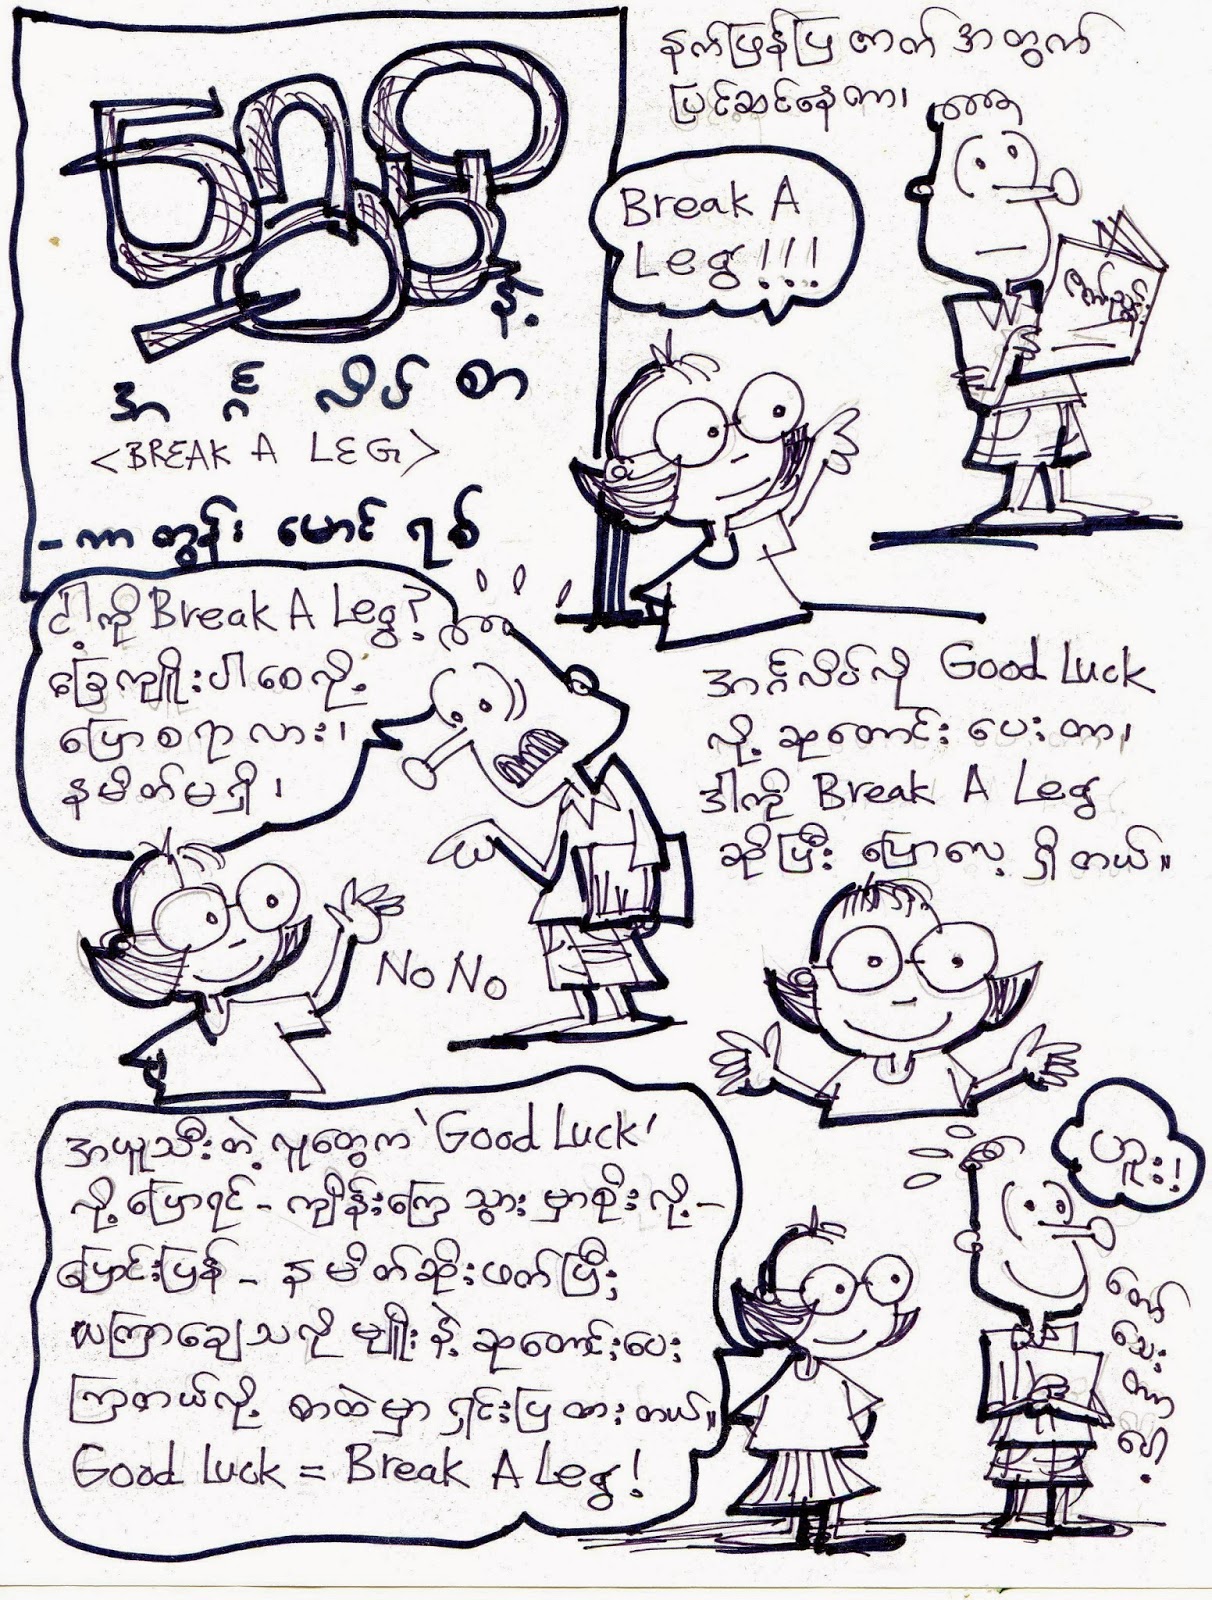 နဲ့
အင်္ဂလိပ်စာ
<BREAK A LEG>
- ကာတွန်း မောင်ရစ်
နက်ဖြန်ပြဇာတ်အတွက်
ပြင်ဆင်နေတာ၊
ဇာတ်ညွှန်း
Break A
Leg!!!
ငါ့ကို Break A Leg?
ခြေကျိုးပါစေလို့
ပြောစရာလား၊
နမိတ်မရှိ၊
No No
အင်္ဂလိပ်လို Good Luck
လို့ ဆုတောင်းပေးတာ၊
ဒါကို Break A Leg
ဆိုပြီး ပြောလေ့ရှိတယ်။
အယူသီးတဲ့လူတွေက 'Good Luck'
လို့ပြောရင် - ကျိန်းကြေသွားမှာစိုးလို့ -
ပြောင်းပြန် - နမိတ်ဆိုးဖတ်ပြီး
ယကြာချေသလိုမျိုးနဲ့ ဆုတောင်းပေး
ကြတယ်လို့ စာထဲမှာ ရှင်းပြထားတယ်။
Good Luck = Break A Leg!
ဟူး!
တော်
သေး
တာ
ပေါ့.